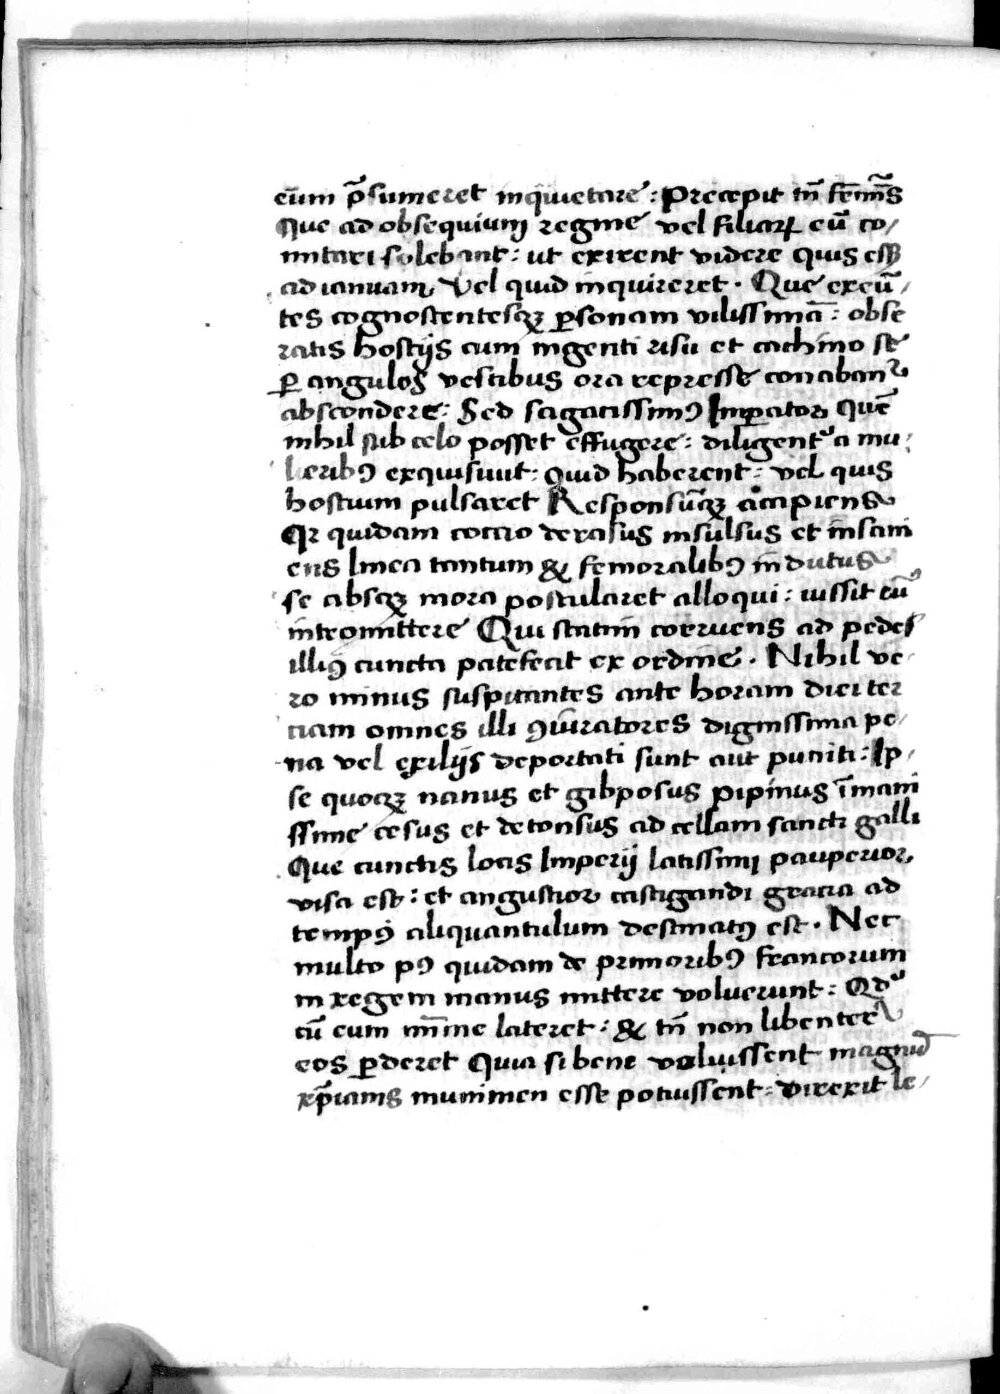 eūm p̄sumeret inquietare : Precepit tn̄ femīs̄
Que ad obsequium regine vel filiaꝝ eū co/
mitari solebant : ut exirent videre quis eſſꝫ
ad ianuam, Vel quid inquireret . Que exeū/
tes cognoscentesqꝫ ꝑsonam vilissimā : obse
ratis hostijs cum ingenti risu et cachino se
ꝑ angulos vestibus ora represse conabant᷑
abscondere : Sed sagatissimꝰ Imꝑator quē
nihil sub celo posset effugere : diligentᵉ a mu/
lieribꝰ exquisiuit : quid haberent : vel quis
hostium pulsaret Responsūqꝫ accipiens
Qꝛ quidam coctio derasus insulsus et insani
ens linea tantum & femoralibꝰ indutus
se absqꝫ mora postularet alloqui : iussit eū
intromittere Qui statim corruens ad pedes
illiꝰ cuncta patefecit ex ordine . Nihil ve/
ro minus suspicantes ante horam diei ter
ciam omnes illi ꝯiuratores dignissima pe/
na vel exilijs deportati sunt aut puniti : Ip/
se quoqꝫ nanus et gibposus pipinus īmani
ssime cesus et detonsus ad cellam sancti galli
Que cunctis locis Imperij latissimi pauperior
visa est : et angustior castigandi gracia ad
tempꝰ aliquantulum destinatꝰ est . Nec
multo pꝰ quidam de primoribꝰ francorum
in regem manus mittere voluerunt : Qdᵉ
cū eum mīme lateret : & tn̄ non libenter
eos ꝑderet Quia si bene voluissent magnū
xp̄ianis munimen esse potuissent : direxit le/